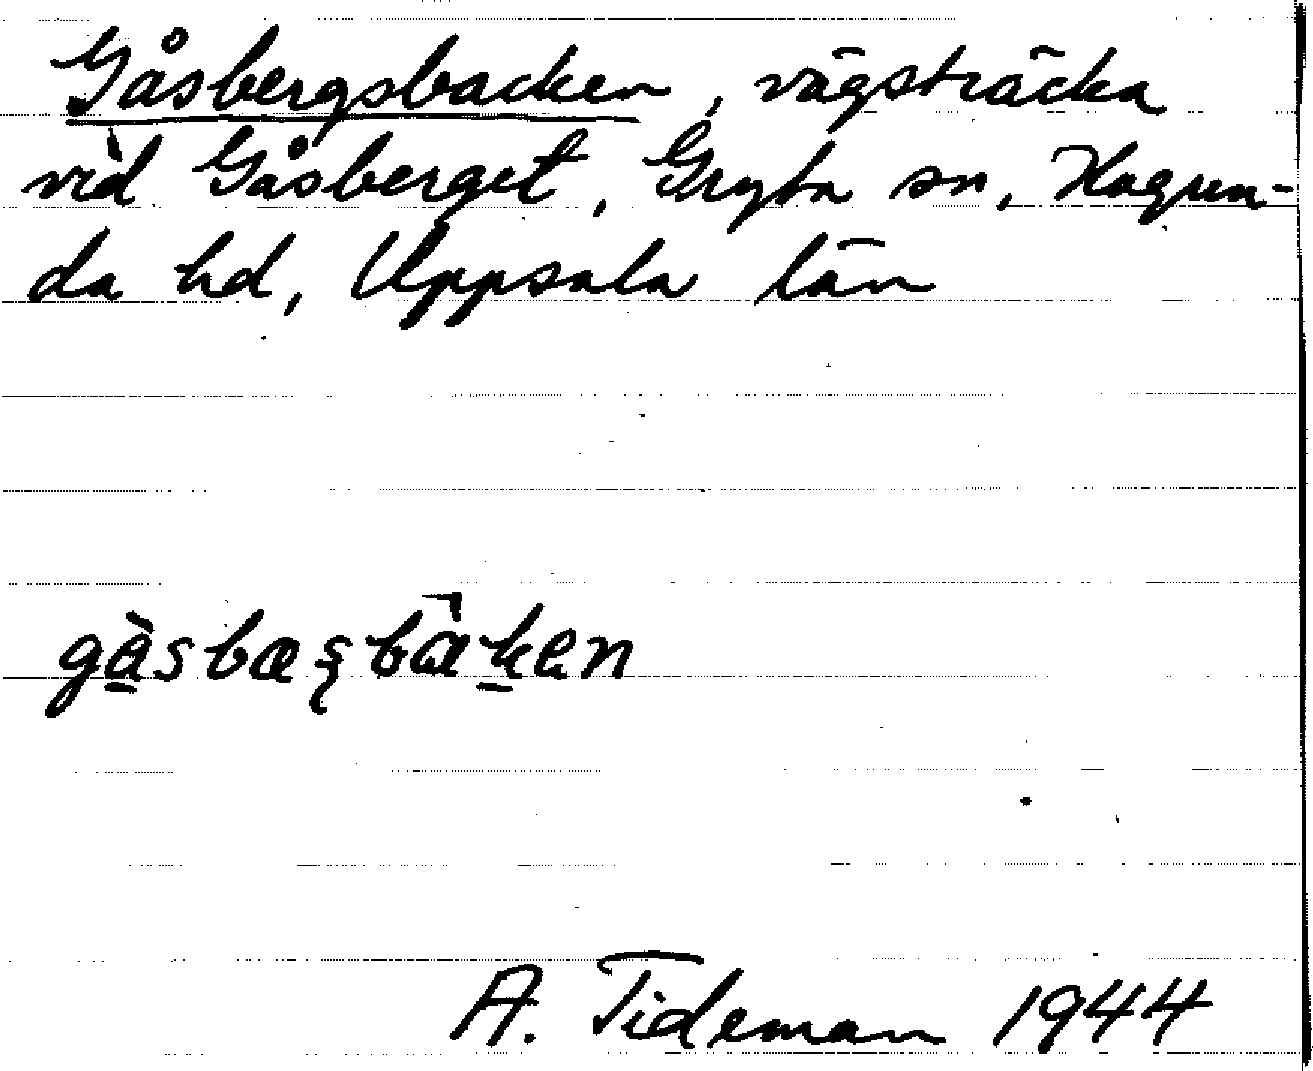 Gåsbergsbacken, vägsträcka
vid Gåsberget, Gryta sn, Hagun-
da hd, Uppsala län
gàsbæșbáken
A. Tideman 1944